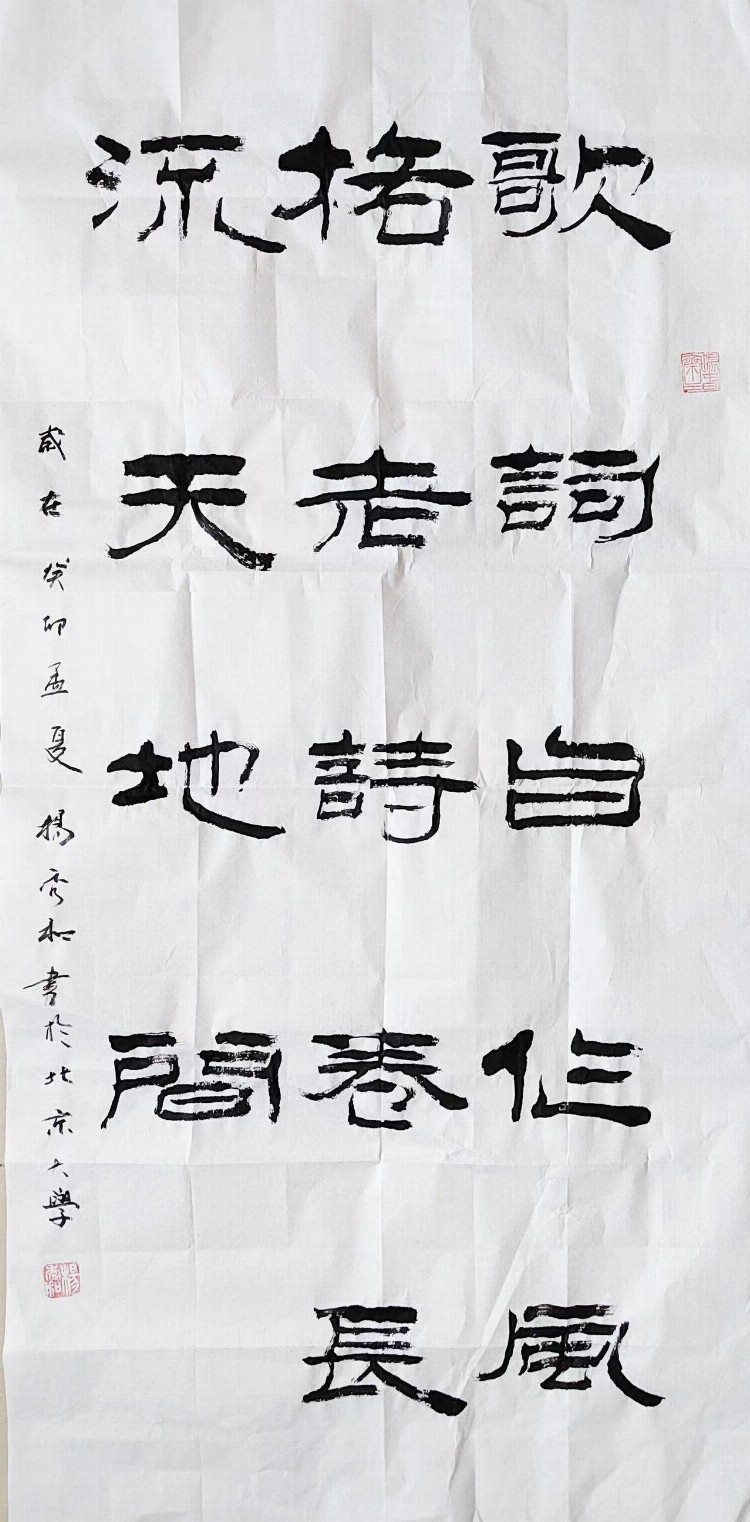 歌詞自作風
格老詩卷長
流天地間
歲在癸卯孟夏楊秀和書於北京大學
楊秀和